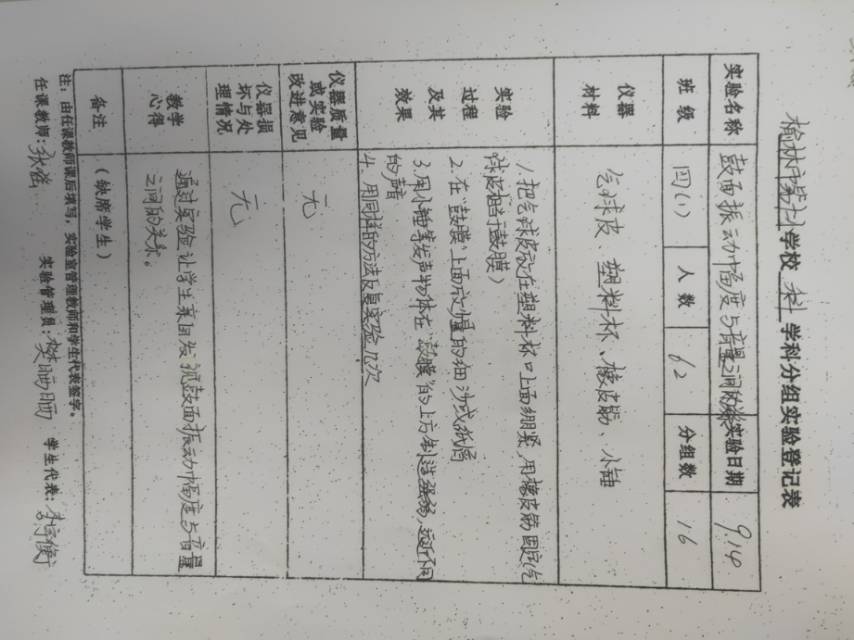 榆林市第十八学校 科 学科分组实验登记表
实验名称 鼓面振动幅度与音量之间的 实验日期 9.14
班级 四(1) 人数 62 分组数 16
仪器材料 气球皮、塑料杯、橡皮筋、小锤
实验过程及其效果
1. 把气球皮放在塑料杯口上面绷紧,用橡皮筋固定(气
球皮相当于鼓膜)
2. 在"鼓膜"上面放少量的细沙或纸屑
3. 用小锤等发声物体在"鼓膜"的上方制造强弱,远近不同
的声音
4. 用同样的方法反复实验几次
仪器质量或实验改进意见 无
仪器损坏与处理情况 无
教学心得
通过实验让学生亲自发现鼓面振动幅度与音量
之间的关系。
备注 (缺席学生)
注:由任课教师课后填写,实验室管理教师和学生代表签字。
任课教师: 实验管理员: 学生代表: